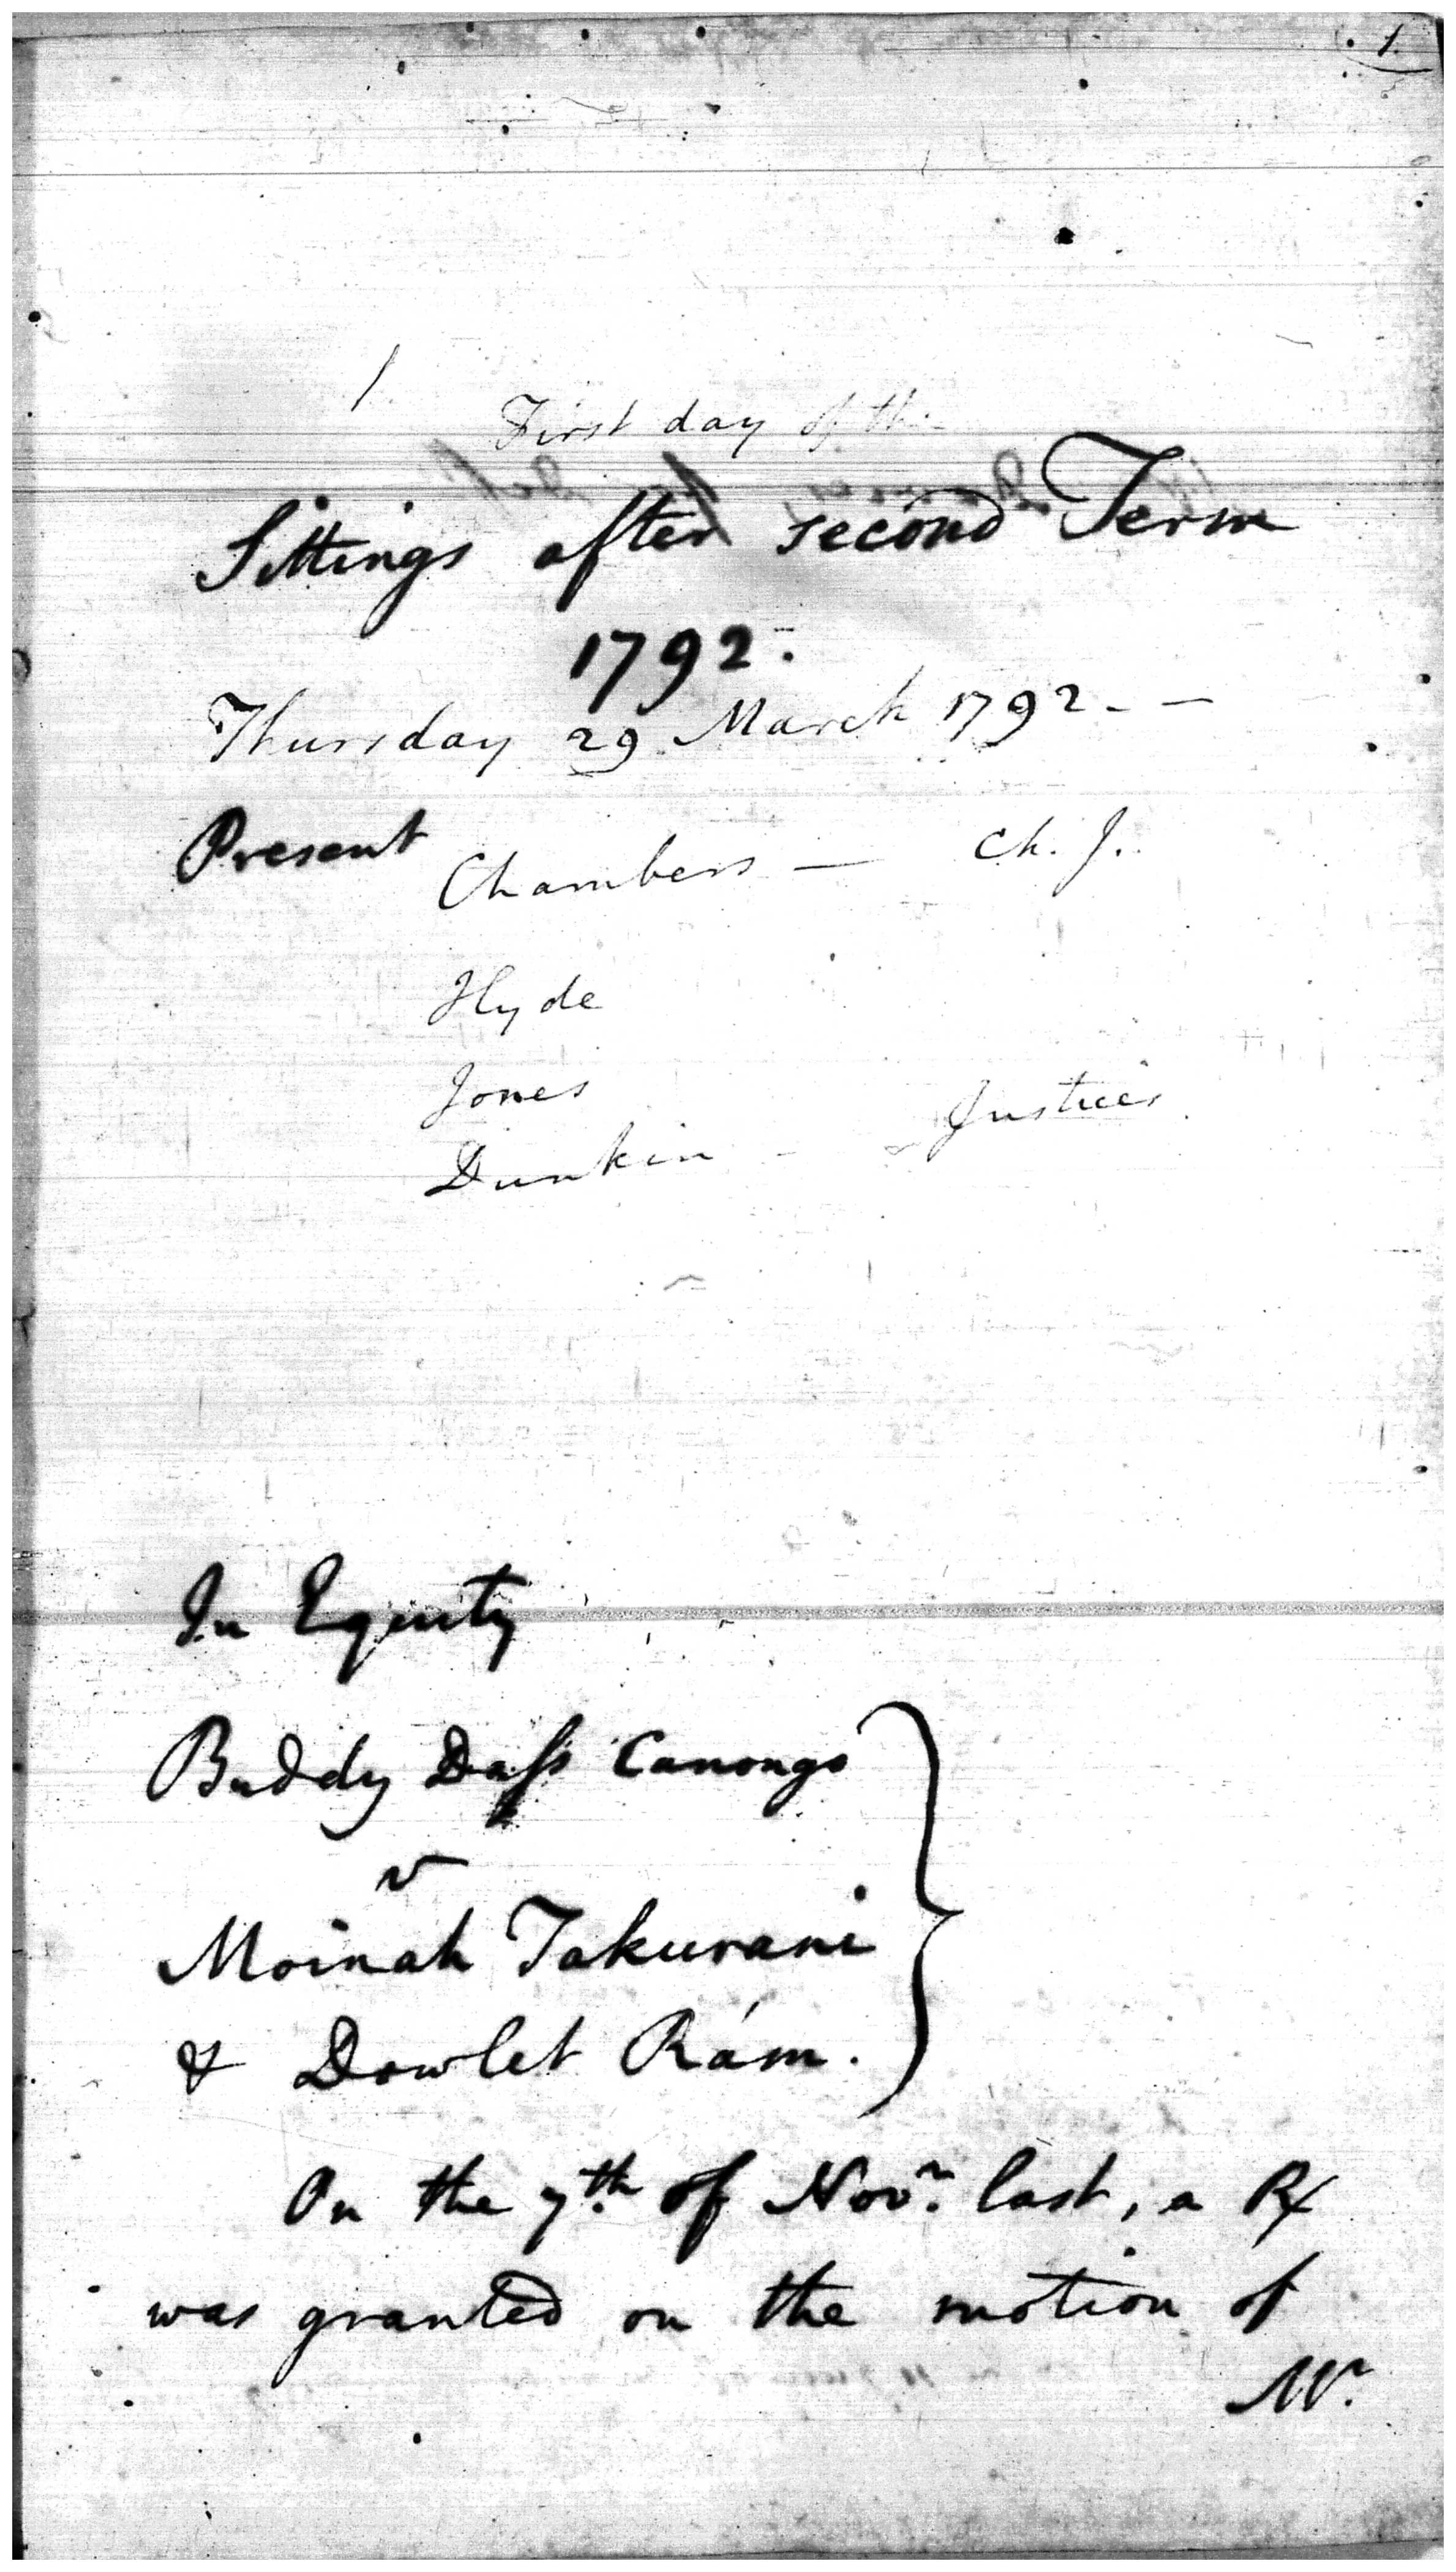 1.
1.
First day of the
Sittings after second Term
1792.
Thursday 29 March 1792. —
Present Chambers — Ch. J.
Hyde
Jones
Dunkin - Justices
In Equity
Buddy Dass Canongo
v
Moinah Takurani
& Dowlet Rám.
On the 7th. of Novr. last, a
was granted on the motion of
Mr.